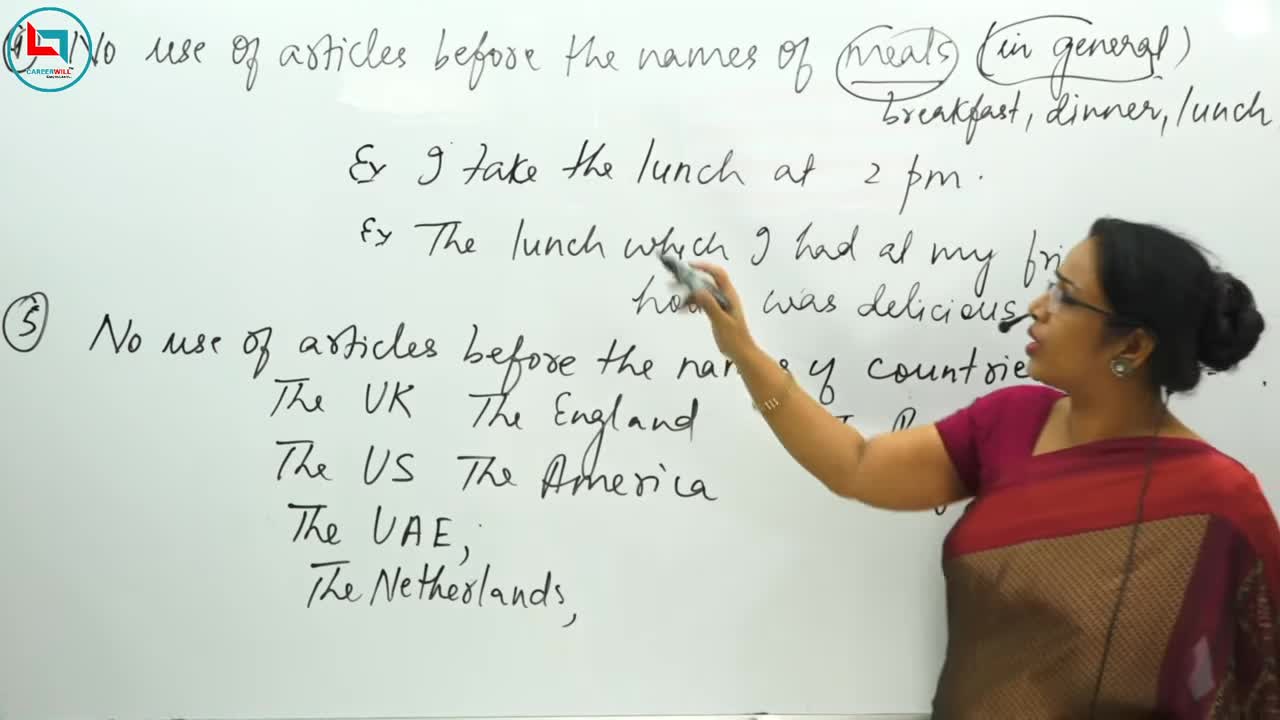 4) No use of articles before the names of meals (in general)
CAREERWILL
breakfast, dinner, lunch
Ex I take the lunch at 2 pm.
Ex The lunch which I had at my fri
was delicious
5 No use of articles before the names of countrie
The UK The England
The US The America
The UAE;
The Netherlands,